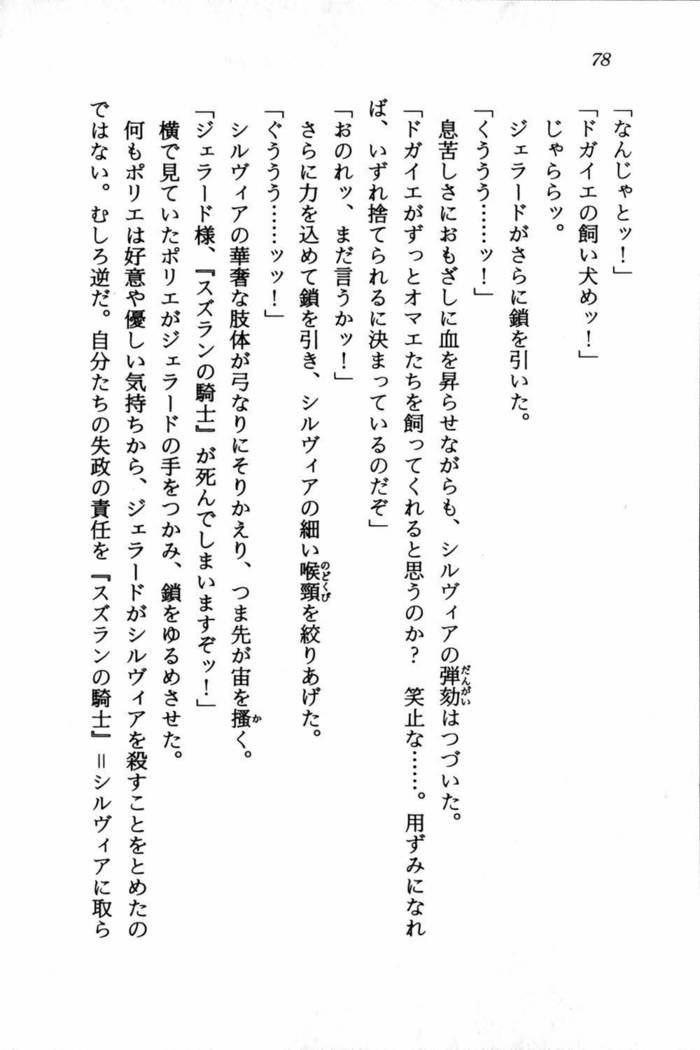 78
「なんじゃとッ！」
「ドガイエの飼い犬めッ！」
じゃららッ。
ジェラードがさらに鎖を引いた。
「くううう……ッ！」
息苦しさにおもざしに血を昇らせながらも、シルヴィアの弾劾はつづいた。
「ドガイエがずっとオマエたちを飼ってくれると思うのか？　笑止な……。用ずみになれ
ば、いずれ捨てられるに決まっているのだぞ」
「おのれッ、まだ言うかッ！」
さらに力を込めて鎖を引き、シルヴィアの細い喉頸を絞りあげた。
「ぐううう……ッッ！」
シルヴィアの華奢な肢体が弓なりにそりかえり、つま先が宙を掻く。
「ジェラード様、『スズランの騎士』が死んでしまいますぞッ！」
横で見ていたポリエがジェラードの手をつかみ、鎖をゆるめさせた。
何もポリエは好意や優しい気持ちから、ジェラードがシルヴィアを殺すことをとめたの
ではない。むしろ逆だ。自分たちの失政の責任を『スズランの騎士』＝シルヴィアに取ら